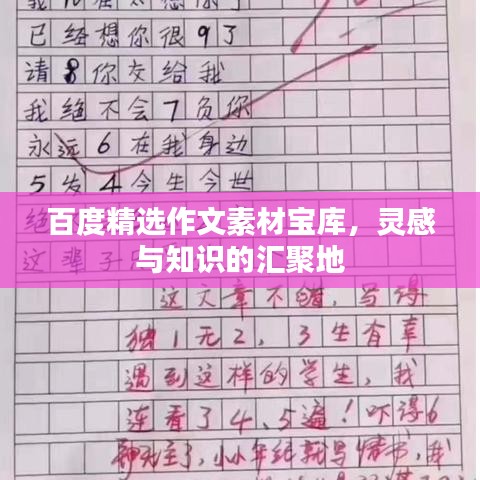 已经想你很9了
请8你交给我
我绝不会7负你
永远6在我身边
5发4今生今世
百度精选作文素材宝库，灵感
与知识的汇聚地
这辈子
这文章不错，写得
独1无2，3生有幸
遇到这样的学生，我
连看了4、5遍！吓得6
神无主了，小小年纪就写情书，我